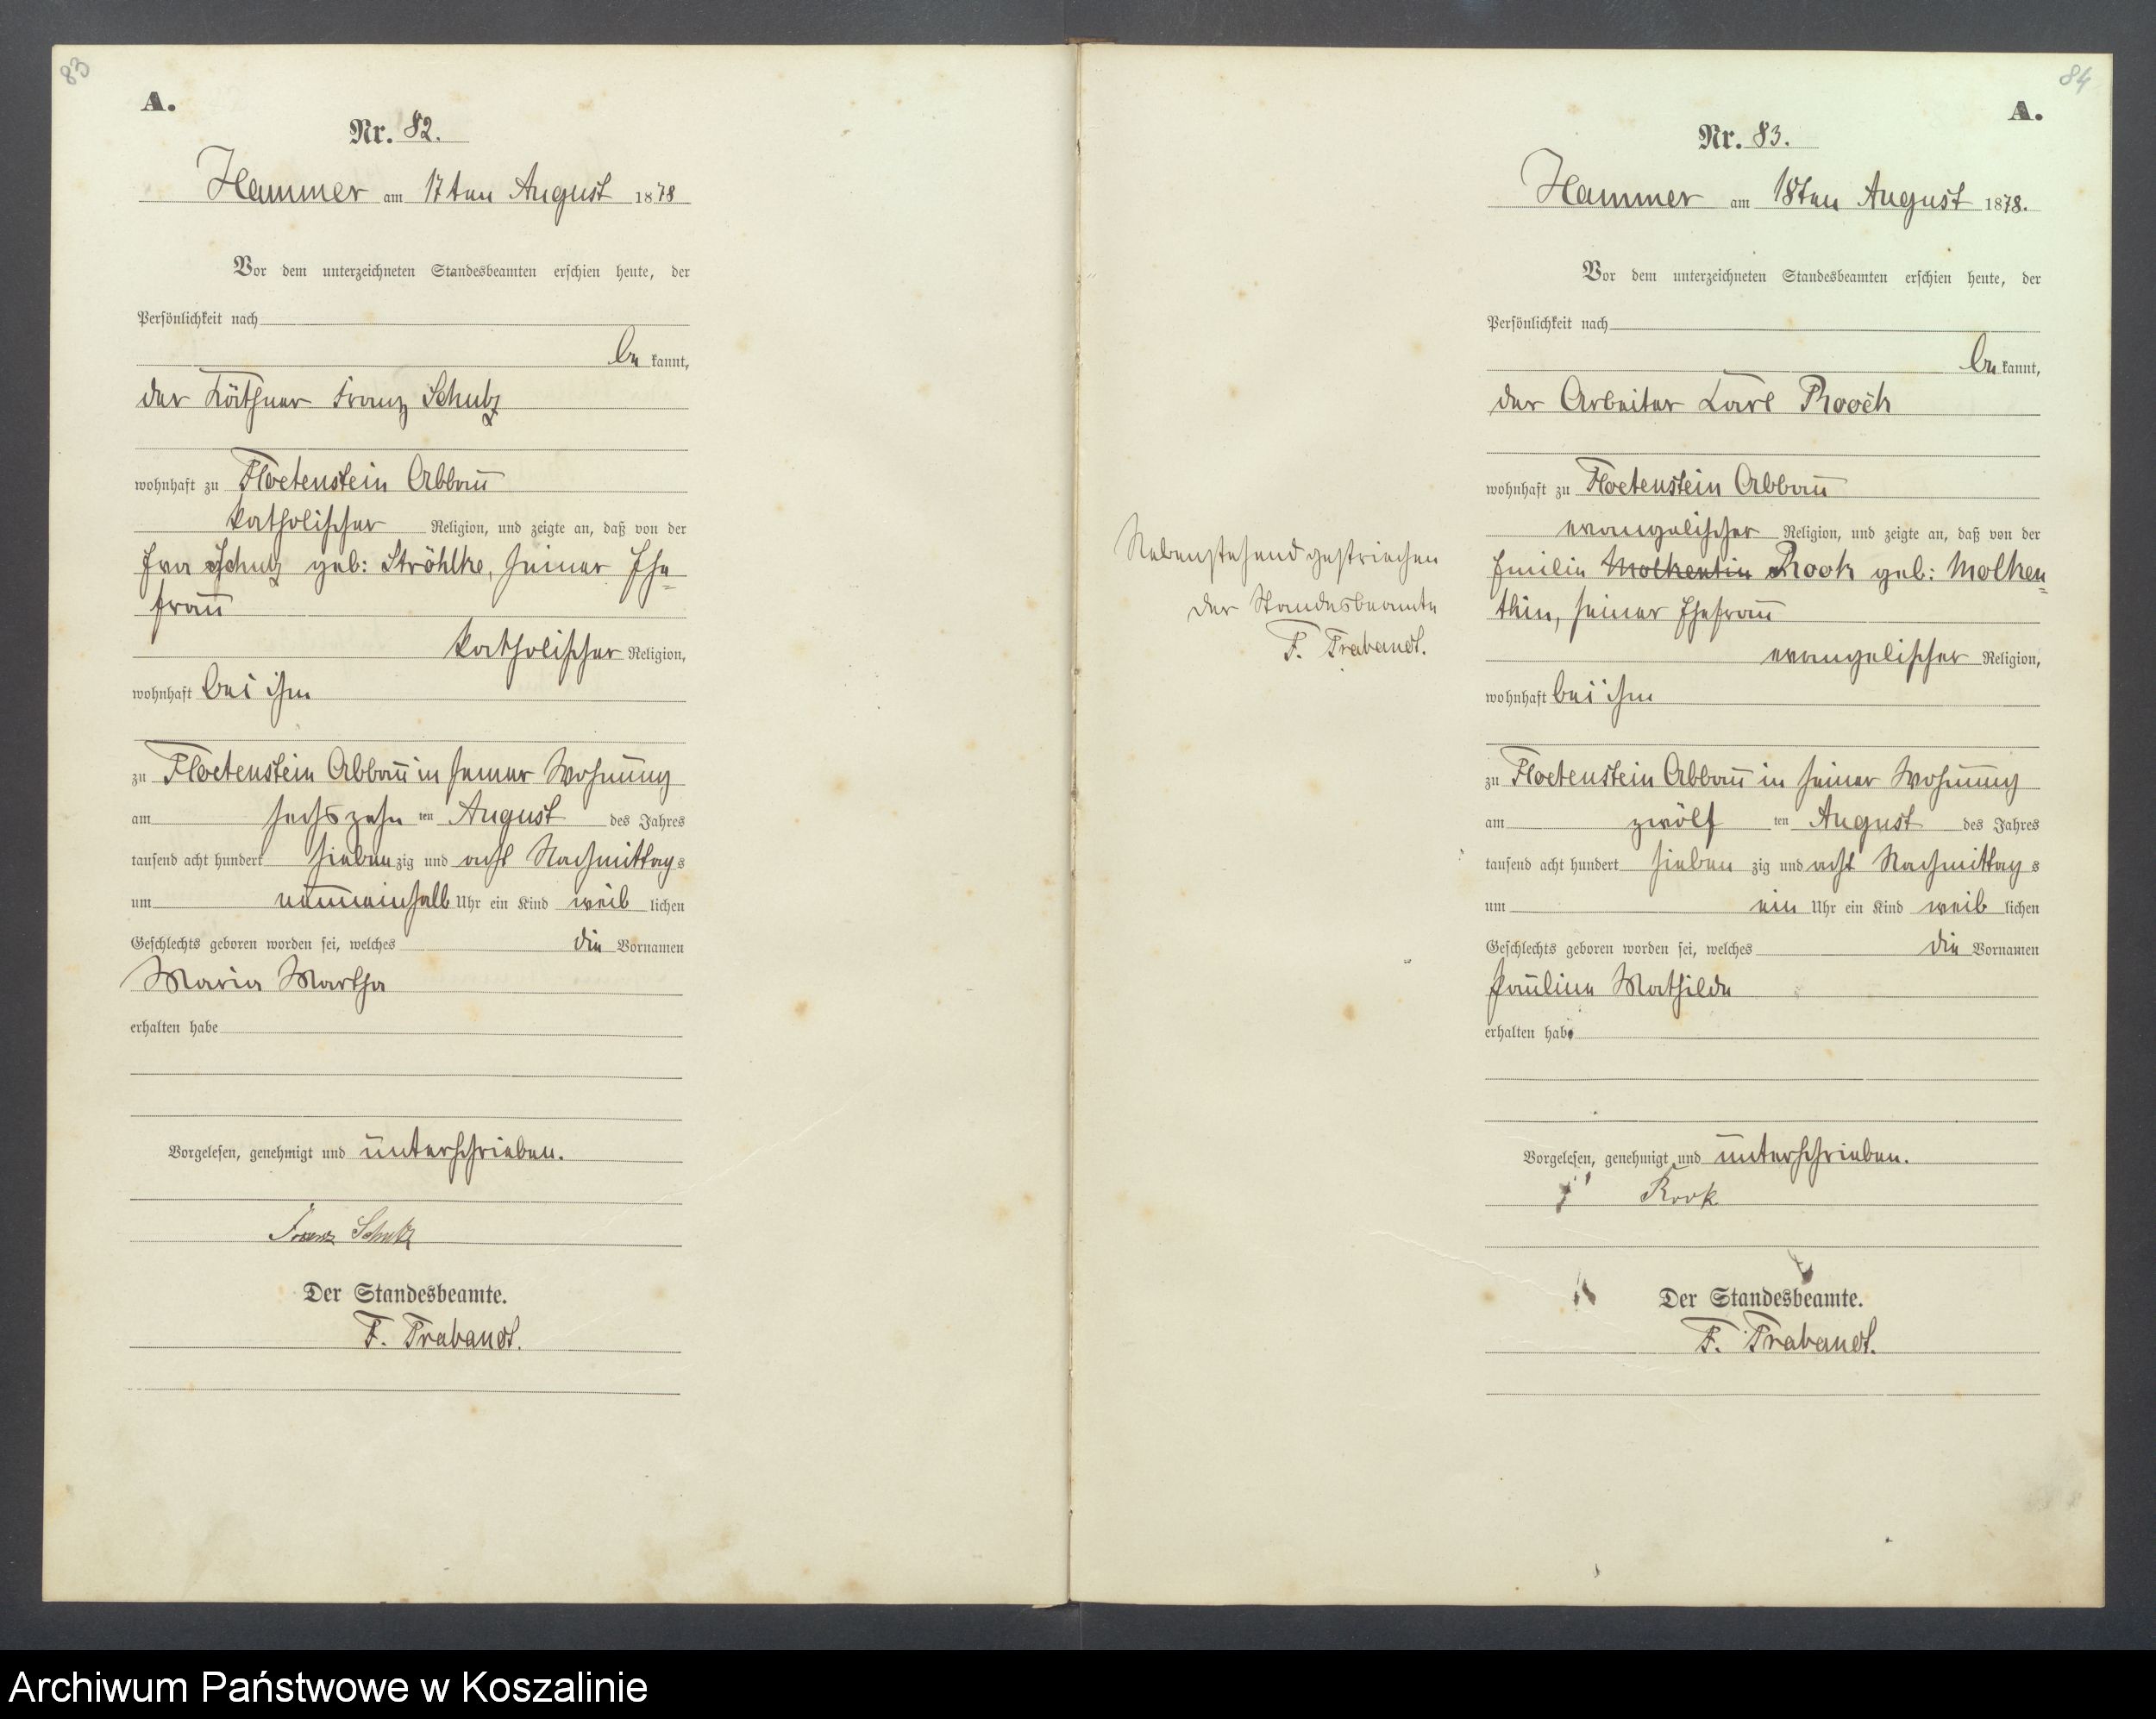 83
A.
Nr. 82.
Hammer am 17ten August 1878
Vor dem unterzeichneten Standesbeamten erschien heute, der
Persönlichkeit nach
be kannt,
der Käthner Franz Schulz
wohnhaft zu Floetenstein Abbau
katholischer Religion, und zeigte an, daß von der
Eva Schulz geb: Ströhlke, seiner Ehe=
frau
katholischer Religion,
wohnhaft bei ihm
zu Floetenstein Abbau in seiner Wohnung
am sechszehn ten August des Jahres
tausend acht hundert sieben zig und acht Nachmittag s
um neuneinhalb Uhr ein Kind weib lichen
Geschlechts geboren worden sei, welches die Vornamen
Maria Martha
erhalten habe
Vorgelesen, genehmigt und unterschrieben.
Franz Schulz
Der Standesbeamte.
F. Trabandt.
84
A.
Nr. 83.
Hammer am 18ten August 1878.
Vor dem unterzeichneten Standesbeamten erschien heute, der
Persönlichkeit nach
be kannt,
der Arbeiter Karl Rook
wohnhaft zu Floetenstein Abbau
evangelischer Religion, und zeigte an, daß von der
Emilie Molkentin Rook geb: Molken=
thin, seiner Ehefrau
evangelischer Religion,
wohnhaft bei ihm
zu Floetenstein Abbau in seiner Wohnung
am zwölf ten August des Jahres
tausend acht hundert sieben zig und acht Nachmittag s
um ein Uhr ein Kind weib lichen
Geschlechts geboren worden sei, welches die Vornamen
Pauline Mathilde
erhalten habe
Vorgelesen, genehmigt und unterschrieben.
Rook
Der Standesbeamte.
F. Trabandt.
Nebenstehend gestrichen
der Standesbeamte
F. Trabandt.
Archiwum Państwowe w Koszalinie